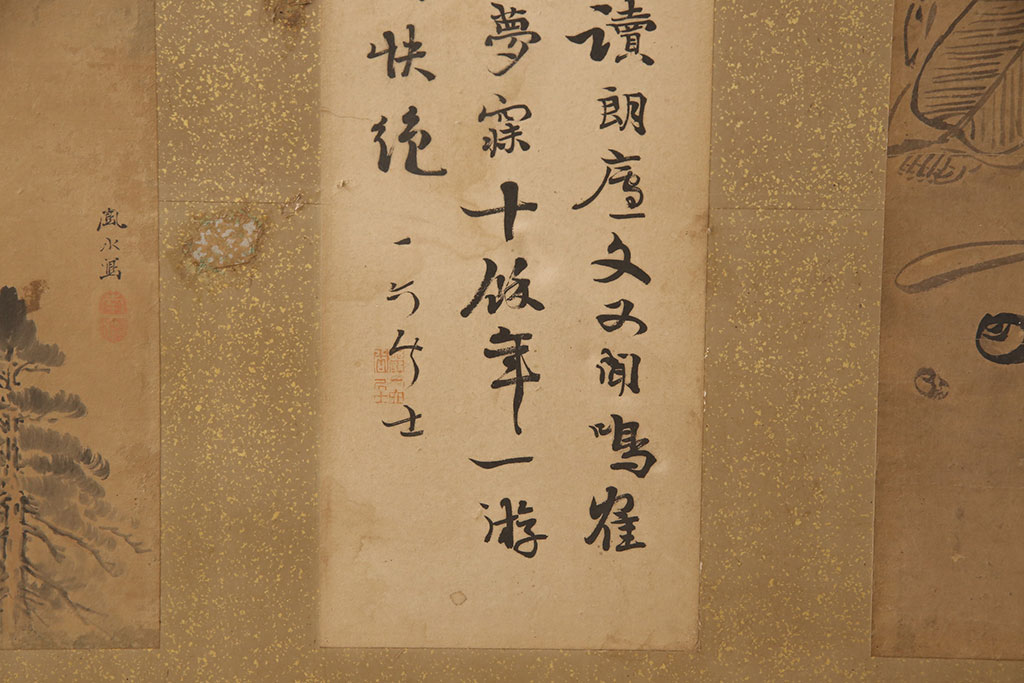 讀朗廬文又聞鳴崔
夢寐十餘年一游
快絶
一六居士
嵐水寫